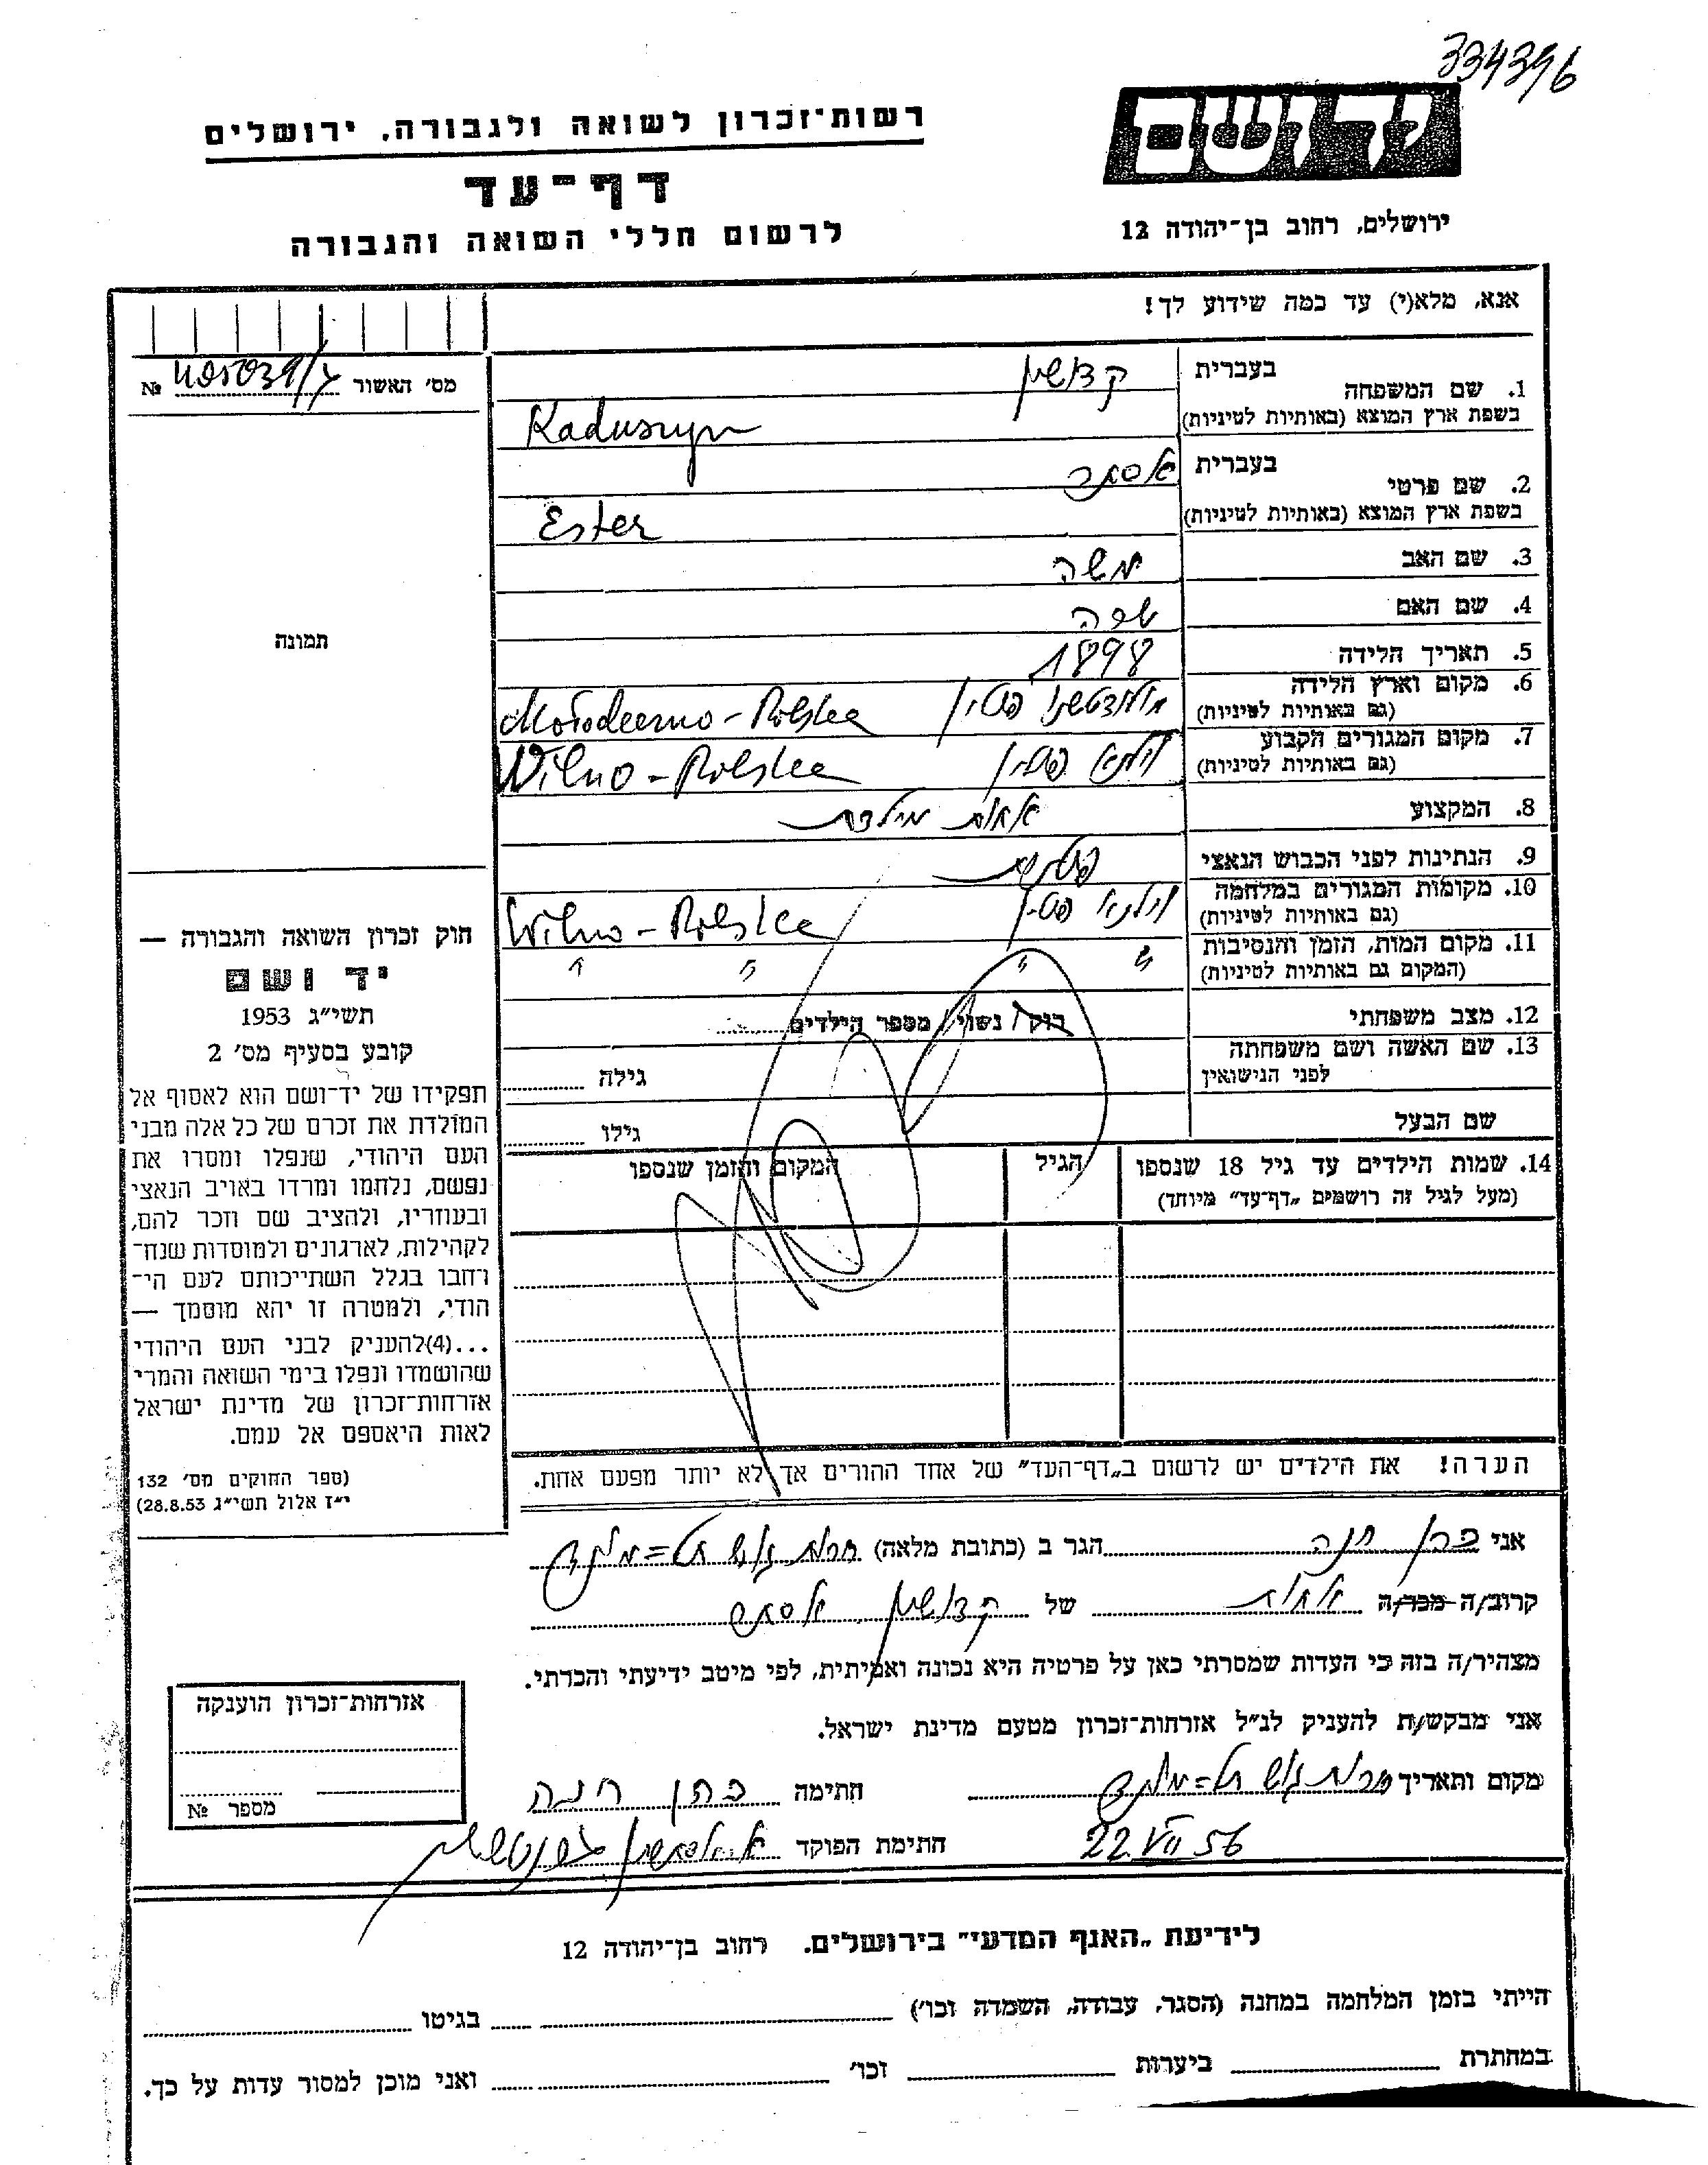 334396
יד ושם
ירושלים, רחוב בן־יהודה 12
רשות־זכרון לשואה ולגבורה, ירושלים
דף־עד
לרשום חללי השואה והגבורה
אנא, מלא(י) עד כמה שידוע לך!
מס׳ האשור №
1. שם המשפחה
בעברית
קדושין
בשפת ארץ המוצא (באותיות לטיניות)
Kaduszyn
2. שם פרטי
בעברית
אסתר
בשפת ארץ המוצא (באותיות לטיניות)
Ester
3. שם האב
משה
4. שם האם
5. תאריך הלידה
1898
6. מקום וארץ הלידה
(גם באותיות לטיניות)
פולין Mołodeczno - Polska
7. מקום המגורים הקבוע
(גם באותיות לטיניות)
וילנא פולין Wilno - Polska
8. המקצוע
אחות מילדת
9. הנתינות לפני הכבוש הנאצי
פולנית
10. מקומות המגורים במלחמה
(גם באותיות לטיניות)
וילנא פולין Wilno - Polska
11. מקום המות, הזמן והנסיבות
(המקום גם באותיות לטיניות)
" " " "
12. מצב משפחתי
רוק/ נשוי/ מספר הילדים
13. שם האשה ושם משפחתה
לפני הנישואין
גילה
שם הבעל
גילו
14. שמות הילדים עד גיל 18 שנספו
(מעל לגיל זה רושמים „דף־עד״ מיוחד)
הגיל
המקום והזמן שנספו
הערה! את הילדים יש לרשום ב„דף־העד״ של אחד ההורים אך לא יותר מפעם אחת.
תמונה
חוק זכרון השואה והגבורה —
יד ושם
תשי״ג 1953
קובע בסעיף מס׳ 2
תפקידו של יד־ושם הוא לאסוף אל
המולדת את זכרם של כל אלה מבני
העם היהודי, שנפלו ומסרו את
נפשם, נלחמו ומרדו באויב הנאצי
ובעוזריו, ולהציב שם וזכר להם,
לקהילות, לארגונים ולמוסדות שנח־
רבו בגלל השתייכותם לעם הי־
הודי, ולמטרה זו יהא מוסמך —
...(4)להעניק לבני העם היהודי
שהושמדו ונפלו בימי השואה והמרי
אזרחות־זכרון של מדינת ישראל
לאות היאספם אל עמם.
(ספר החוקים מס׳ 132
י״ז אלול תשי״ג 28.8.53)
אני כהן חנה הגר ב (כתובת מלאה)
קרוב/ה מכר/ה אחות של קדושין אסתר
מצהיר/ה בזה כי העדות שמסרתי כאן על פרטיה היא נכונה ואמיתית, לפי מיטב ידיעתי והכרתי.
אני מבקש/ת להעניק לנ״ל אזרחות־זכרון מטעם מדינת ישראל.
מקום ותאריך חתימה כהן חנה
22 VII 56 חתימת הפוקד
אזרחות־זכרון הוענקה
מספר №
לידיעת „האגף המדעי״ בירושלים. רחוב בן־יהודה 12
הייתי בזמן המלחמה במחנה (הסגר, עבודה, השמדה וכו׳) בגיטו
במחתרת ביערות וכו׳ ואני מוכן למסור עדות על כך.